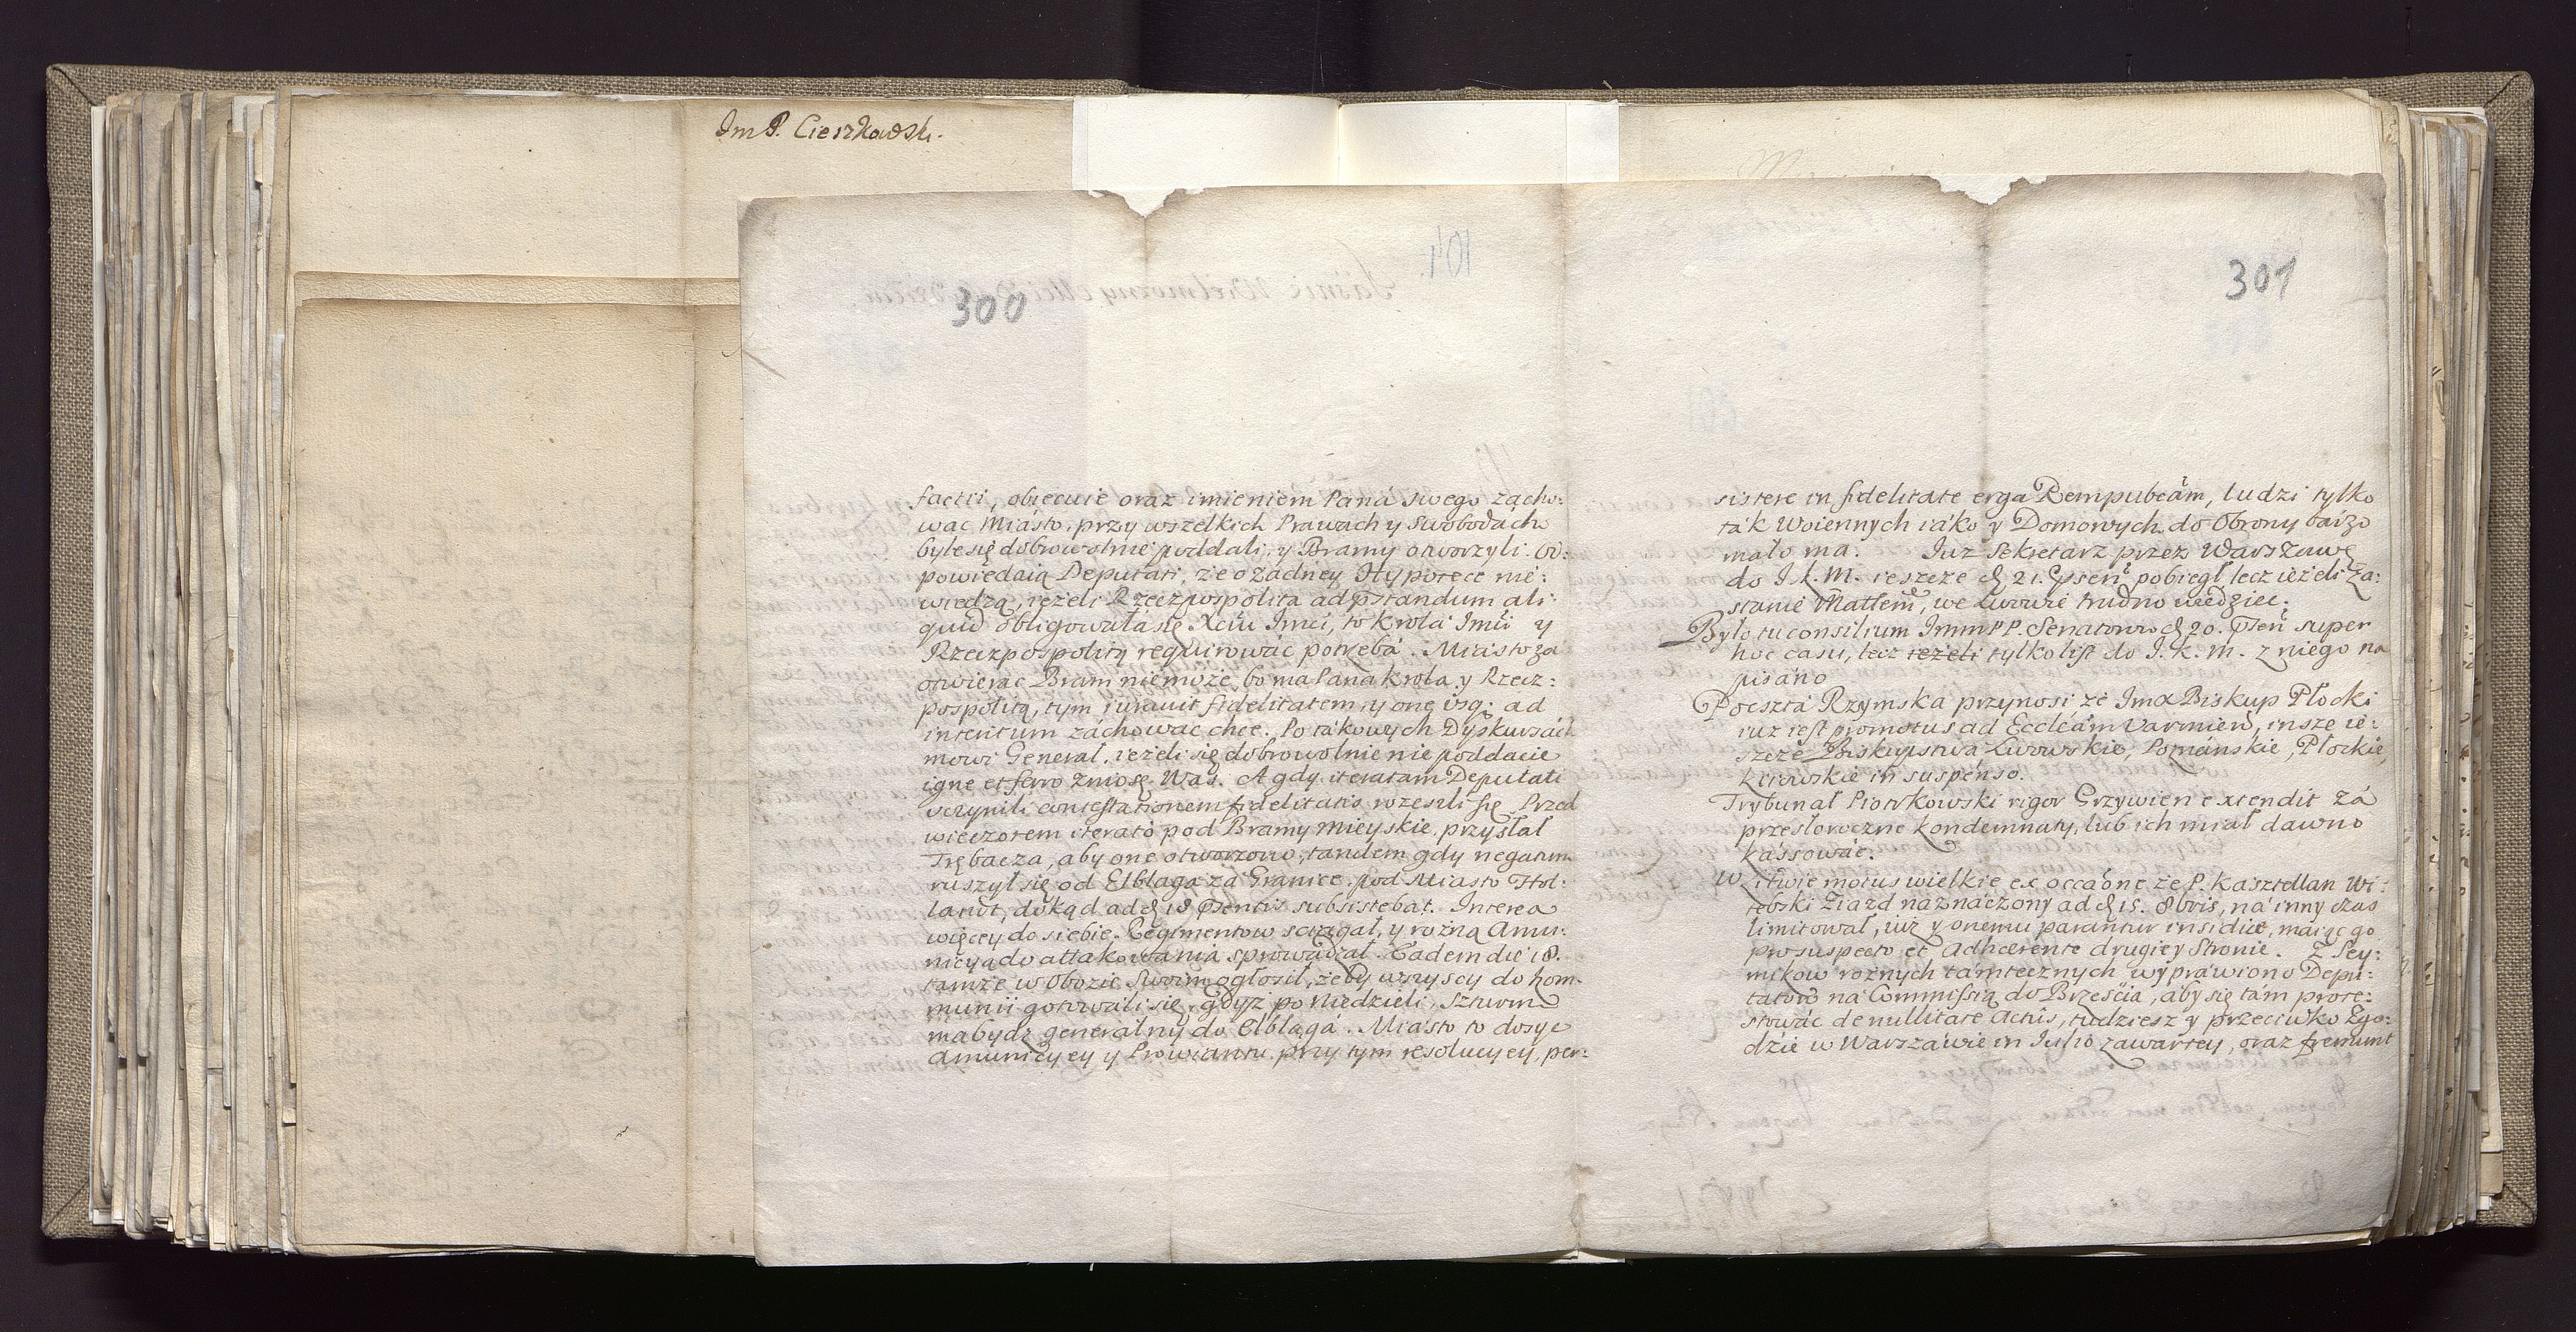 Im P. Cieszkowski.
300
facti, obiecuie oraz imieniem Paná swego zácho:
wac Miásto, przy wszelkich Prawach y Swobodach
byle się dobrowolnie poddali, y Bramy otworzyli. Od:
powiedaią Deputati, że o żadney Hypotece nie:
wiedzą, ieżeli Rzeczpospolita ad pstandum ali:
quid obligowała się Xciu Imci, to Krola Imci y
Rzeczpospolitą requirowáć potrzebá. Miasto zá
otwierác Bram niemoże, bo ma Pana Krola y Rzecz:
pospolitą, tym iuravit fidelitatem y onę usq; ad
interitum záchowác chce. Po tákowych Dyskursách
mowi Generał, ieżeli się dobrowolnie nie poddacie
igne et ferro zniosę Was. A gdy iteratam Deputati
uczynili contestationem fidelitatis rozeszli się. Przed
wieczorem iterato pod Bramy mieyskie przysłał
Trębacza, aby one otworzono, tandem gdy negatum
ruszył się od Elblągá zá Granice pod Miásto Hol:
landt, dokąd ad d. 18 psentis subsistebat. Interea
więcey do siebie Regimentow sciągał, y rożną Amu:
nicyą do attakowánia sprowadzał. Eadem die 18.
tamże w Obozie swoim ogłosił, żeby wszyscy do kom:
munii gotowáli się, gdyż po Niedzieli Szturm
ma bydz generálny do Elblągá. Miasto to dosyc
Amunicyey y Prowiantu przy tym resolucyey, per:
301
sistere in fidelitate erga Rempubcam, ludzi tylko
ták Woiennych iáko y Domowych do Obrony bárzo
mało ma. Iuz Sekretarz przez Warszawę
do I. K. M. ieszcze d. 21. psen pobiegł, lecz ieżeli Za:
stanie Mattem, we Lwowie trudno wiedziec.
Było tu consilium Imm PP. Senatorow d. 20. psen super
hoc casu, lecz ieżeli tylko list do I. K. M. z niego na
pisáno
Poczta Rzymska przynosi że Imx Biskup Płocki
iuz iest promotus ad Eccleam Varmien, insze ie:
szcze Biskupstwa Lwowskie, Poznańskie, Płockie,
Kiiowskie in suspenso.
Trybunał Piotrkowski rigor Grzywien extendit zá
przeszłoroczne kondemnaty, lub ich miał dawno
kássowáć.
W Litwie motus wielkie ex occaone że P. Kasztellan Wi:
tebski Ziazd náznáczony ad d. 15. 8bris, ná inny czas
limitował, iuż y onemu parantur insidiae, maiąc go
pro suspecto et Adhaerente drugiey Stronie. Z Sey:
mikow rożnych támtecznych wypráwiono Depu:
tatow ná Commissią do Brześcia, aby się tám prote:
stowác de nullitate Actus, tudziesz y przeciwko Zgo:
dzie w Warszáwie in Iulio záwartey, oraz fremunt